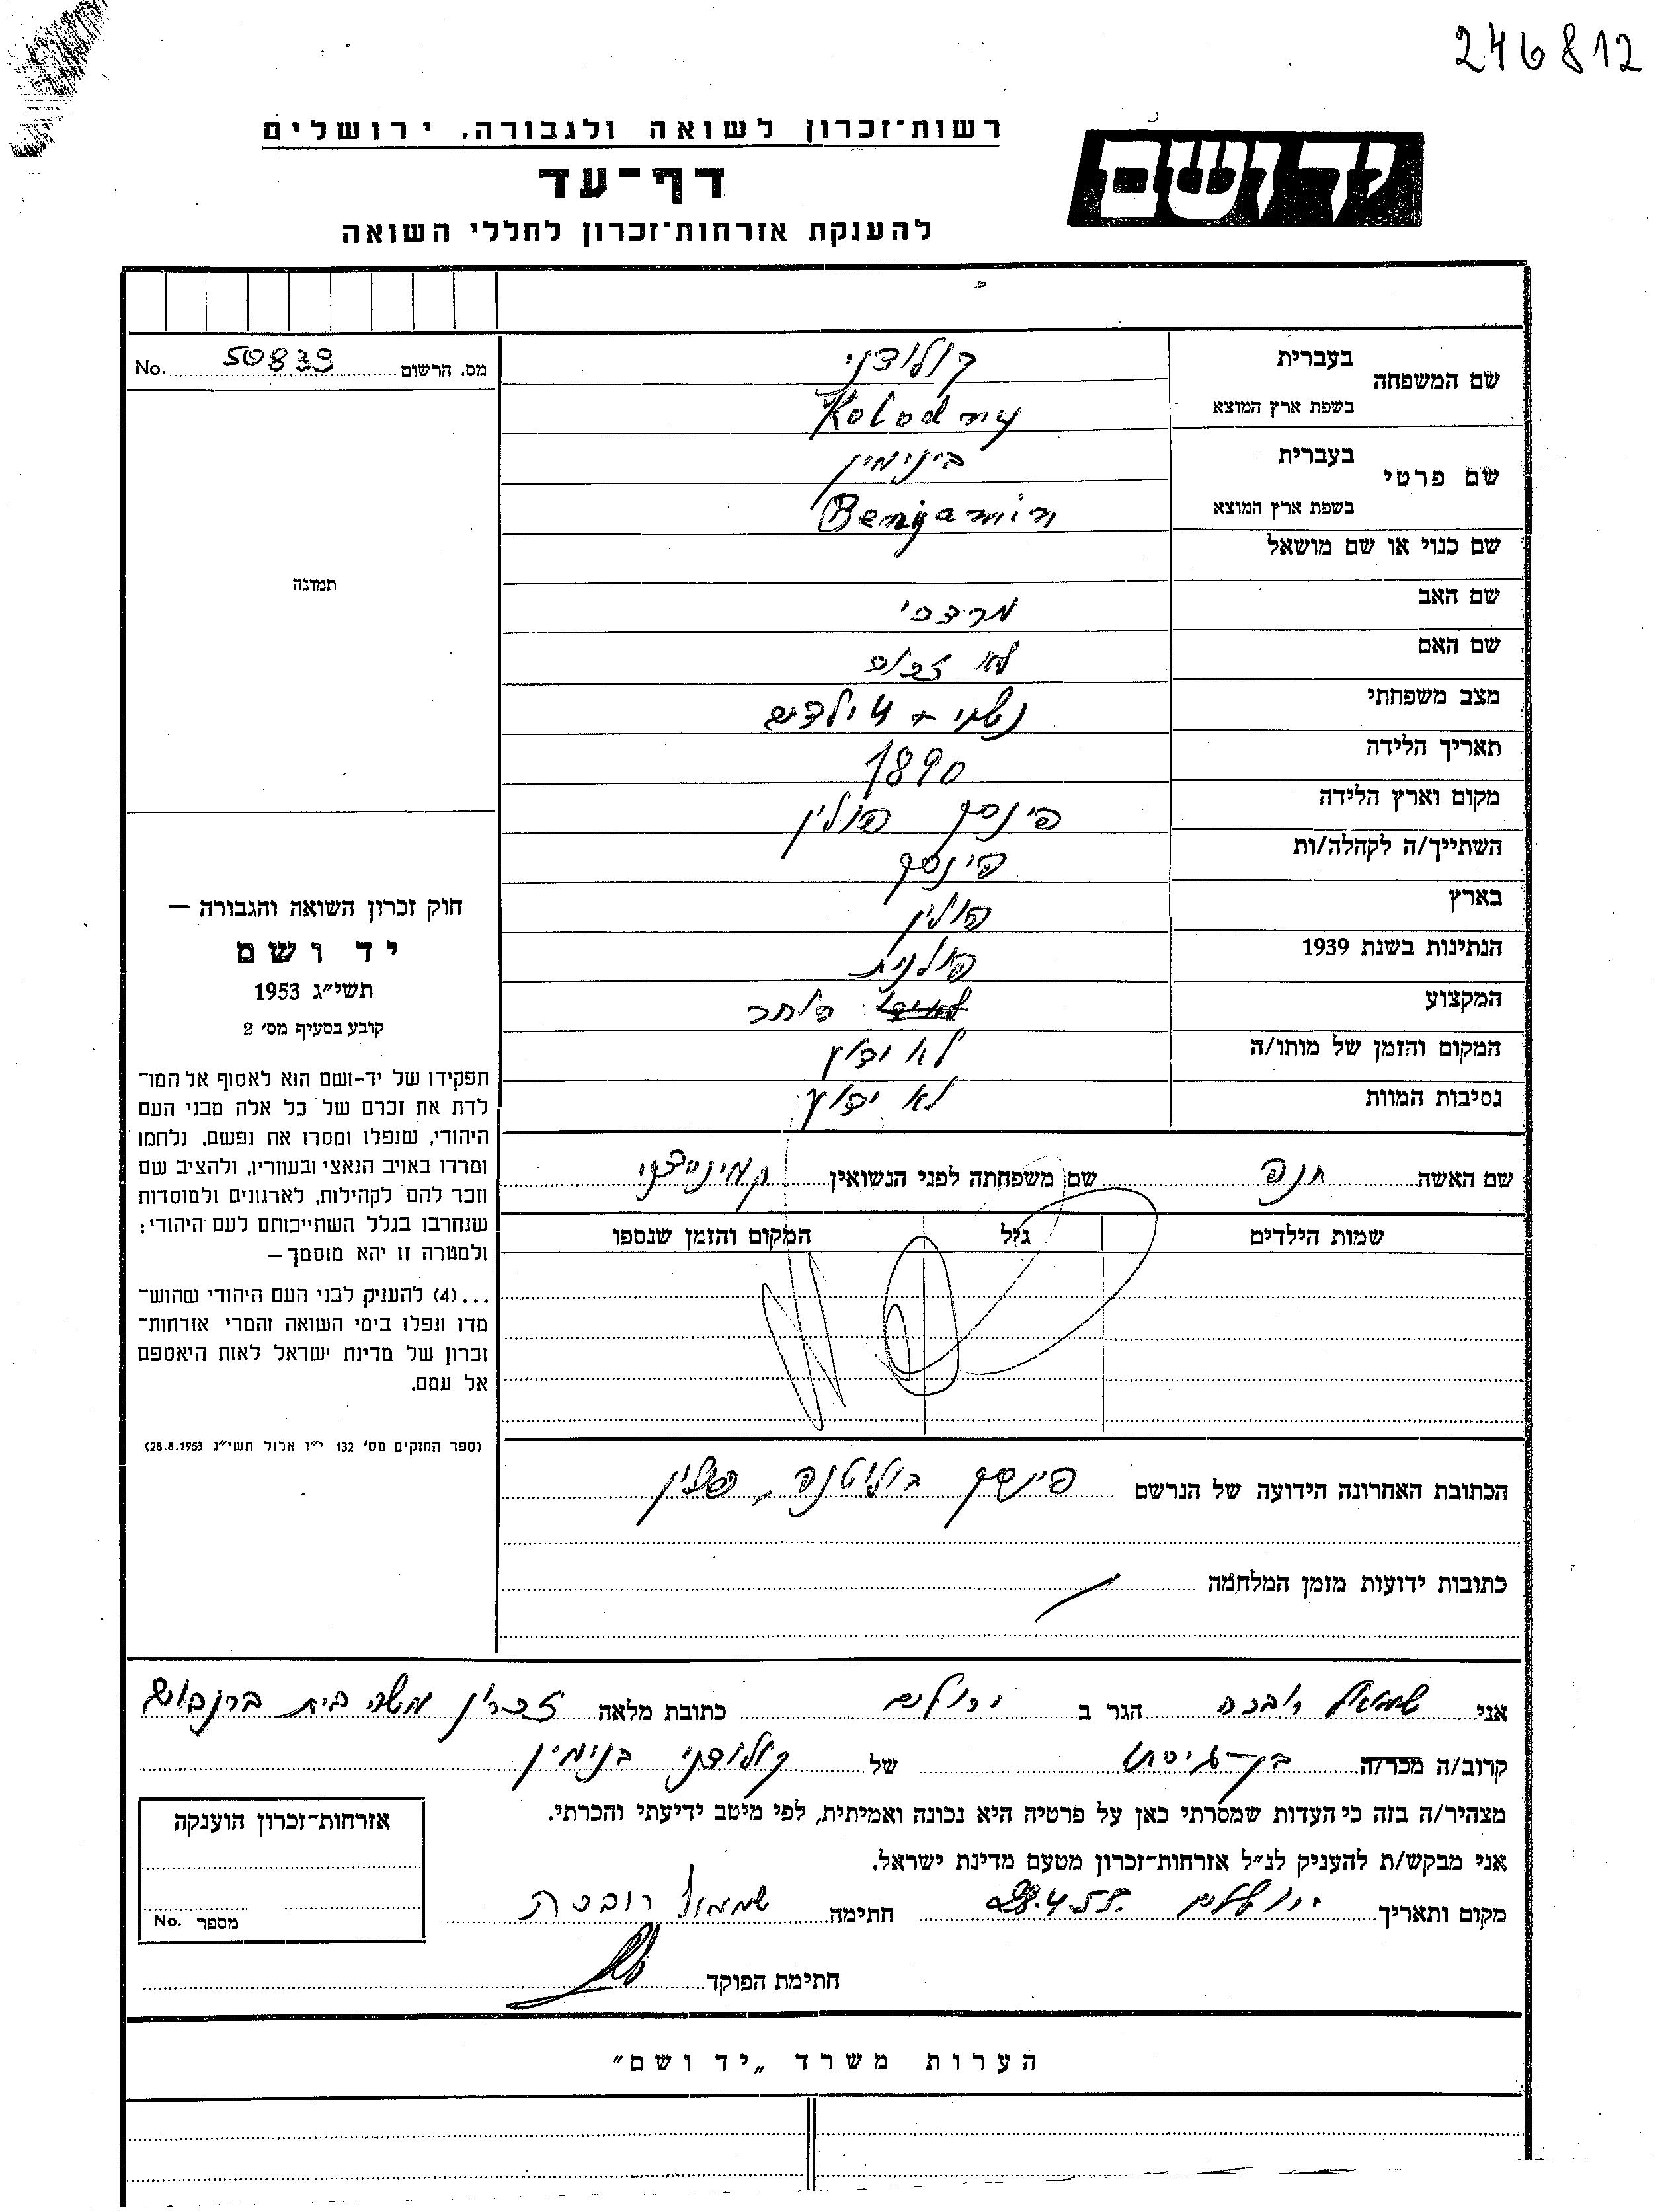 246812
יד ושם
רשות־זכרון לשואה ולגבורה, ירושלים
דף־עד
להענקת אזרחות־זכרון לחללי השואה
מס. הרשום 50839 No.
שם המשפחה בעברית קולודני
בשפת ארץ המוצא Kolodny
שם פרטי בעברית בינימין
בשפת ארץ המוצא Benjamin
שם כנוי או שם מושאל
שם האב מרדכי
שם האם לא זכור
מצב משפחתי נשוי + 4 ילדים
תאריך הלידה 1890
מקום וארץ הלידה פינסק פולין
השתייך/ה לקהלה/ות פינסק
בארץ פולין
הנתינות בשנת 1939 פולנית
המקצוע סוחר
המקום והזמן של מותו/ה לא ידוע
נסיבות המוות לא ידוע
שם האשה חנה שם משפחתה לפני הנשואין
שמות הילדים גיל המקום והזמן שנספו
הכתובת האחרונה הידועה של הנרשם פינסק, פולין
כתובות ידועות מזמן המלחמה
תמונה
חוק זכרון השואה והגבורה —
יד ושם
תשי״ג 1953
קובע בסעיף מס׳ 2
תפקידו של יד-ושם הוא לאסוף אל המו־
לדת את זכרם של כל אלה מבני העם
היהודי, שנפלו ומסרו את נפשם, נלחמו
ומרדו באויב הנאצי ובעוזריו, ולהציב שם
וזכר להם לקהילות, לארגונים ולמוסדות
שנחרבו בגלל השתייכותם לעם היהודי;
ולמטרה זו יהא מוסמך —
...(4) להעניק לבני העם היהודי שהוש־
מדו ונפלו בימי השואה והמרי אזרחות־
זכרון של מדינת ישראל לאות היאספם
אל עמם.
(ספר החוקים מס׳ 132 י״ז אלול תשי״ג 28.8.1953)
אני שמואל רובכה הגר ב ירושלים כתובת מלאה זכרון משה בית
קרוב/ה מכר/ה בן-גיסו של קולודני בנימין
מצהיר/ה בזה כי העדות שמסרתי כאן על פרטיה היא נכונה ואמיתית, לפי מיטב ידיעתי והכרתי.
אני מבקש/ת להעניק לנ״ל אזרחות־זכרון מטעם מדינת ישראל.
מקום ותאריך ירושלים 28.4.55 חתימה שמואל רובכה
חתימת הפוקד
אזרחות־זכרון הוענקה
מספר No.
הערות משרד „יד ושם״